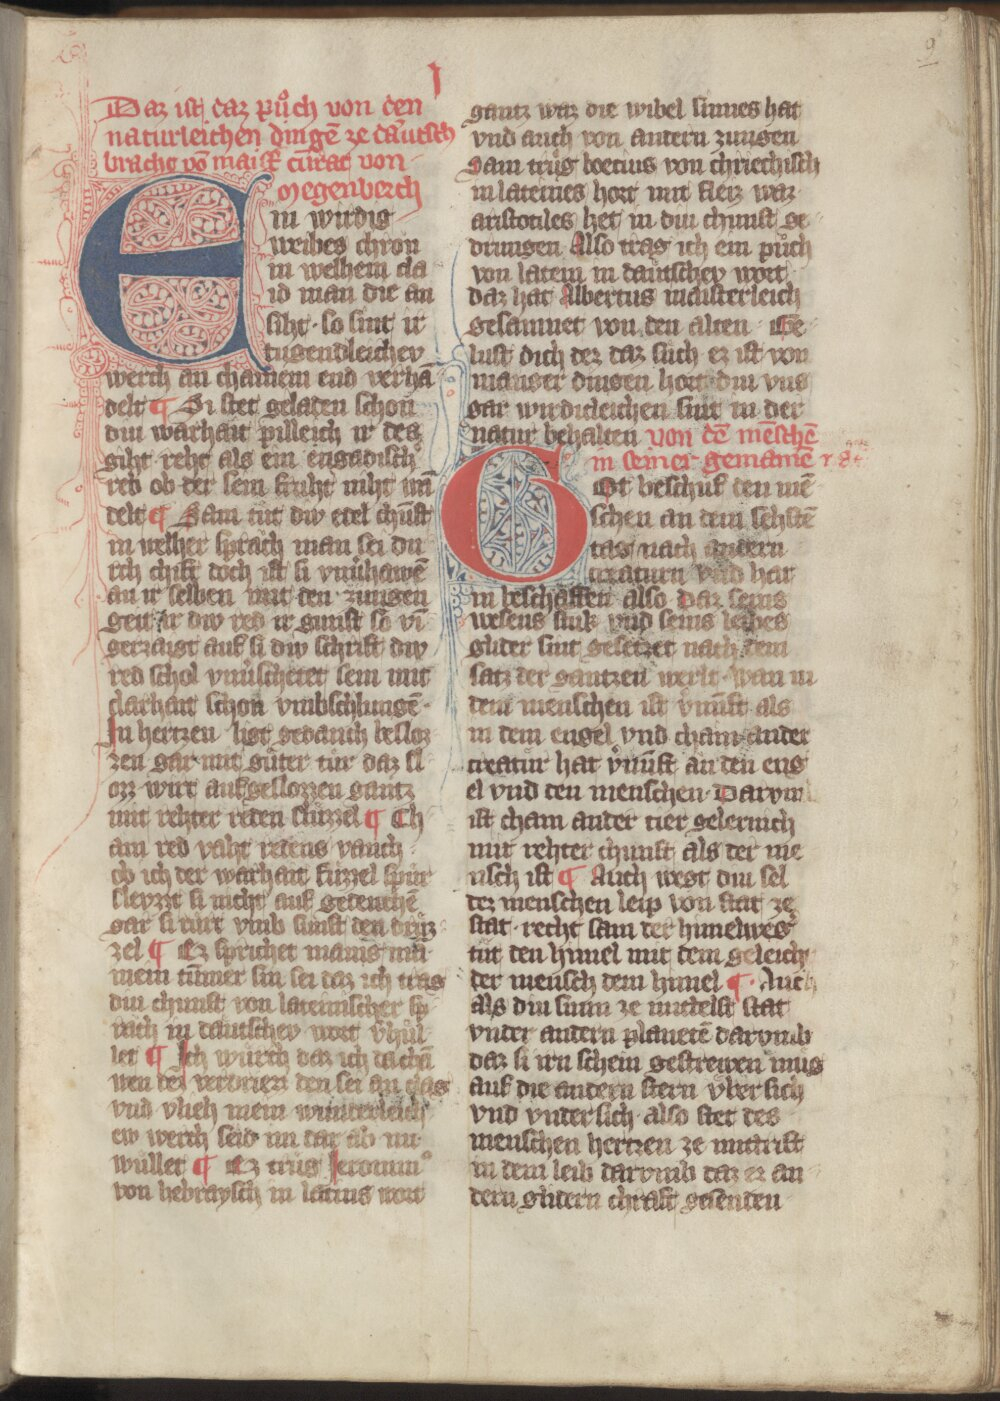 9
I
Daz ist daz půch von den
naturleichen dingē ze däutsch
bracht vō maist̄ cůnrat von
Megenberch
Ein wirdig
weibes chron
in welhem cla
id man die an
siht · so sint ir
tugendleichev
werch an chainem end verhā
delt ¶ Si stet geladen schon
div warhait pilleich ir des
giht reht als ein engadisch
reb ob der sein fruht niht wā
delt ¶ Sam tut div edel chūst
in welher sprach man sei du
rch chift doch ist si vnuͤhawē
an ir selben mit den zungen
geit ir div red ir gunst so vī
gerzaigt auf si div schrift div
red schol vnuͤschertet sein mit
clarhait schon vmbschlungē
In hertzen ligt gedanch besloz
zen gar mit guͤter tuͤr daz sl
ozz wirt aufgeslozzen gantz
mit rehter reden sluzzel ¶ Ch
am red vaht redens vanch
ob ich der warhait fuzzel spur
sleyzzt si nicht auf gedenche
gar si ruͤrt vmb sunst den druͤz
zel ¶ Ez sprichet manig mā
mein tūmer sin sei daz ich trag
div chunst von lateinischer sp
rach in dautschev wort v̄huͤl
let ¶ Ich wuͤrch daz ich da chā
wen dez verdriezz den sei an clag
vnd vlieh mein wunterleich
ew werch seid im dar ab nu
wullet ¶ Ez trůg Jeronimꝰ
von hebraysch in latins wort
gantz waz die wibel sinnes hat
vnd auch von andern zungen
Sam trůg boetius von chriechisch
in lateines hort mit fleiz waz
aristotiles het in div chunst ge
drungen Also trag ich ein půch
von latein in däutschev wort
daz hat Albertus maisterleich
gesamnet von den alten · Ge
lust dich dez daz such er ist von
manger dingen hort div vns
gar wirdicleichen sint in der
natur behalten von dē mēschē
in seiner gemainē
Got beschuf den mē
schen an dem sehstē
tag nach andern
creaturn vnd hat
in beschaffen also daz seins
wesens stuk vnd seins leibes
glider sint gesetzet nach dem
satz der gantzen werlt · wan in
dem menschen ist v̄nūft als
in dem engel vnd chain ander
creatur hat v̄nūft an den eng
el vnd den menschen · Darvm
ist cham ander tier gelernich
mit rehter chunst als der me
nsch ist ¶ Auch wegt div sel
dez menschen leip von stat ze
stat · recht sam der himelweg
tůt den himel mit dem geleich
der mensch dem himel ¶ · Auch
als div sunn ze mittelst stat
vnder andern planetē darvmb
daz si irn schein gestrewen mug
auf die andern stern v̈ber sich
vnd vnder sich · also stet des
menschen hertzen ze mittrist
in dem leib darvmb daz ez an
dern glidern chraft gesenden